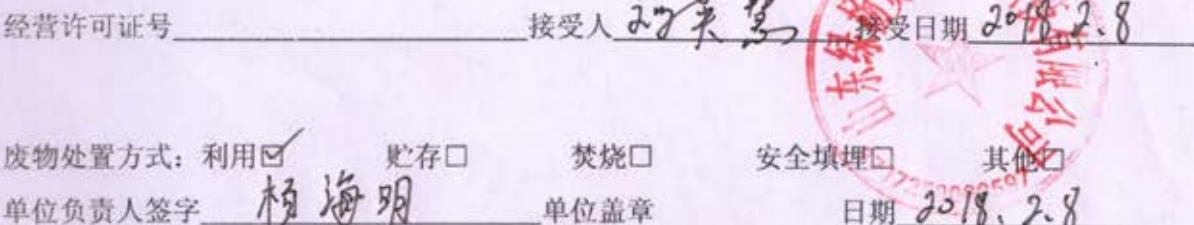 经营许可证号 接受人 接受日期 2018.2.8
废物处置方式：利用☑ 贮存□ 焚烧□ 安全填埋□ 其他□
单位负责人签字 杨海明 单位盖章 日期 2018.2.8
山东绿 有限公司